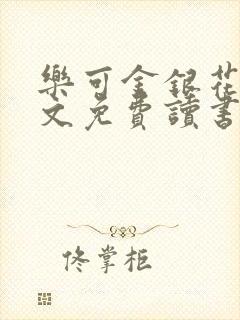 樂可金銀花
文免費讀書
佟掌柜